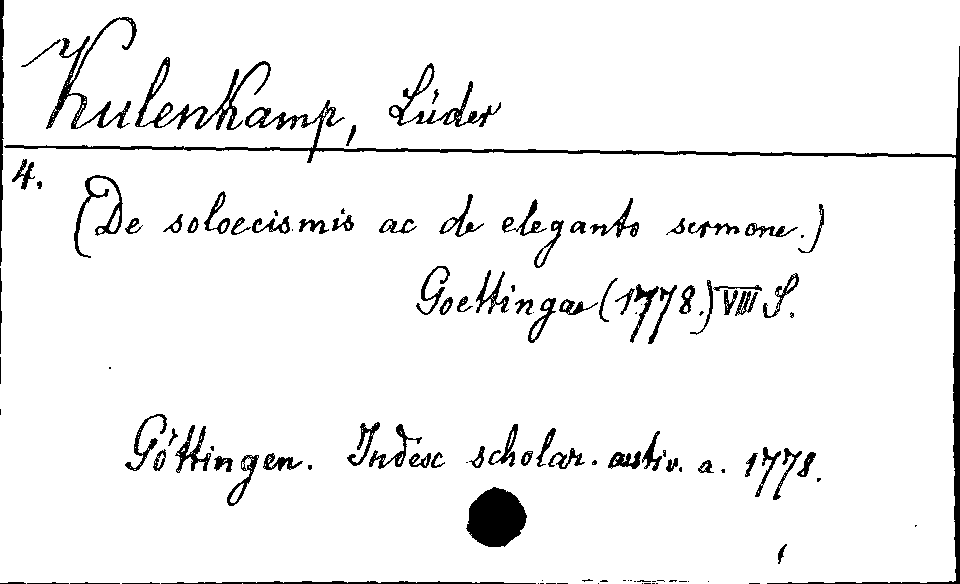 Kulenkamp, Lüder
4.
(De soloecismis ac de eleganto sermone.)
Goettingae (1778.) VIII S.
Göttingen. Index scholar. aestiv. a. 1778.